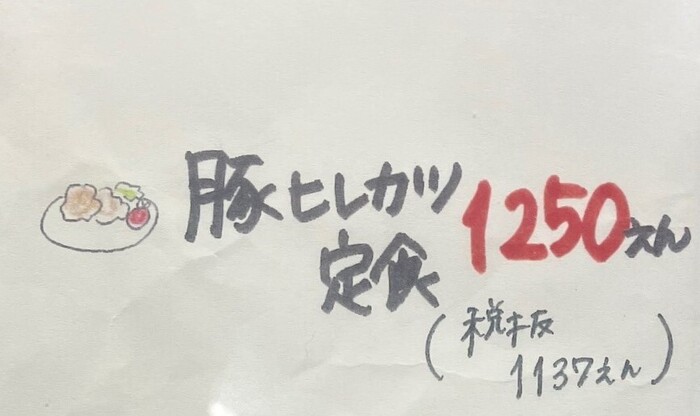 豚ヒレカツ
定食
1250えん
(税板
1137えん)